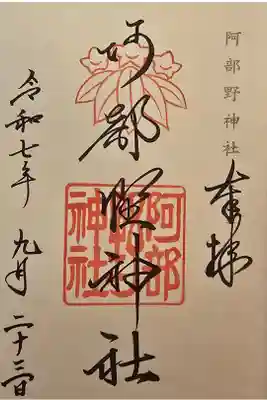 阿部野神社
奉拝
阿部野神社
阿部野神社
令和七年 九月 二十三日